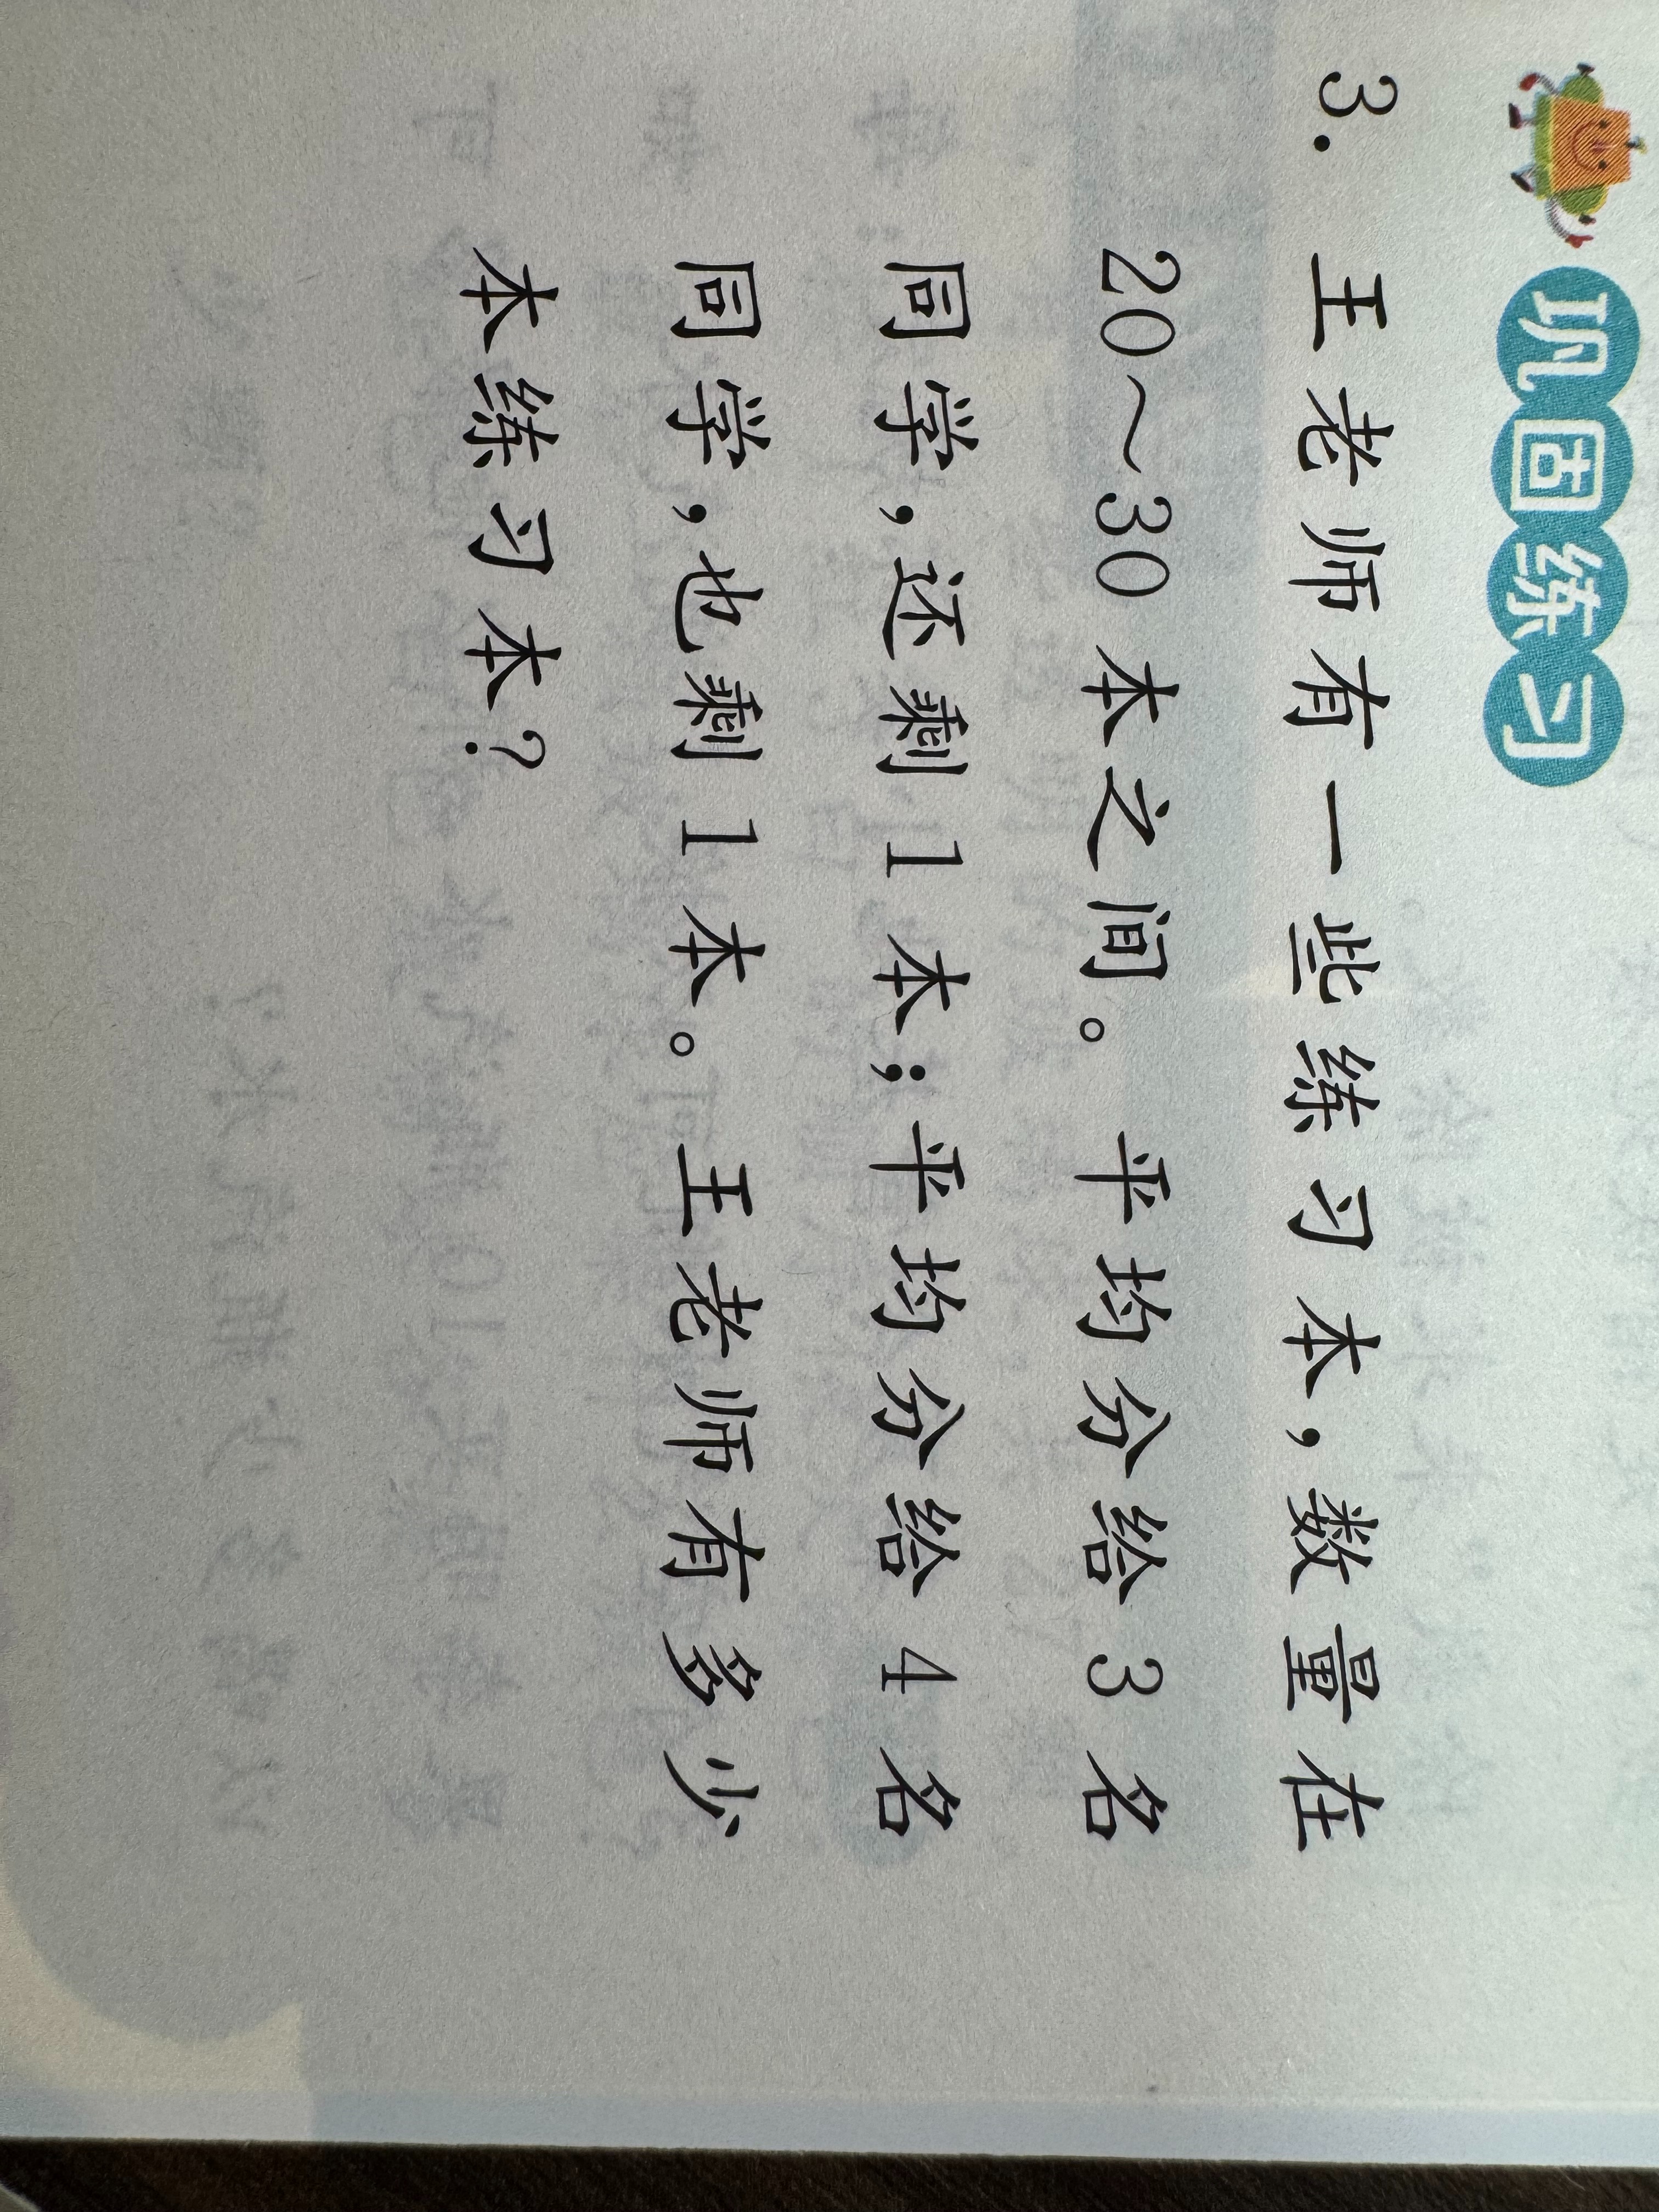 巩固练习
3. 王老师有一些练习本,数量在
20～30本之间。平均分给3名
同学,还剩1本;平均分给4名
同学,也剩1本。王老师有多少
本练习本?